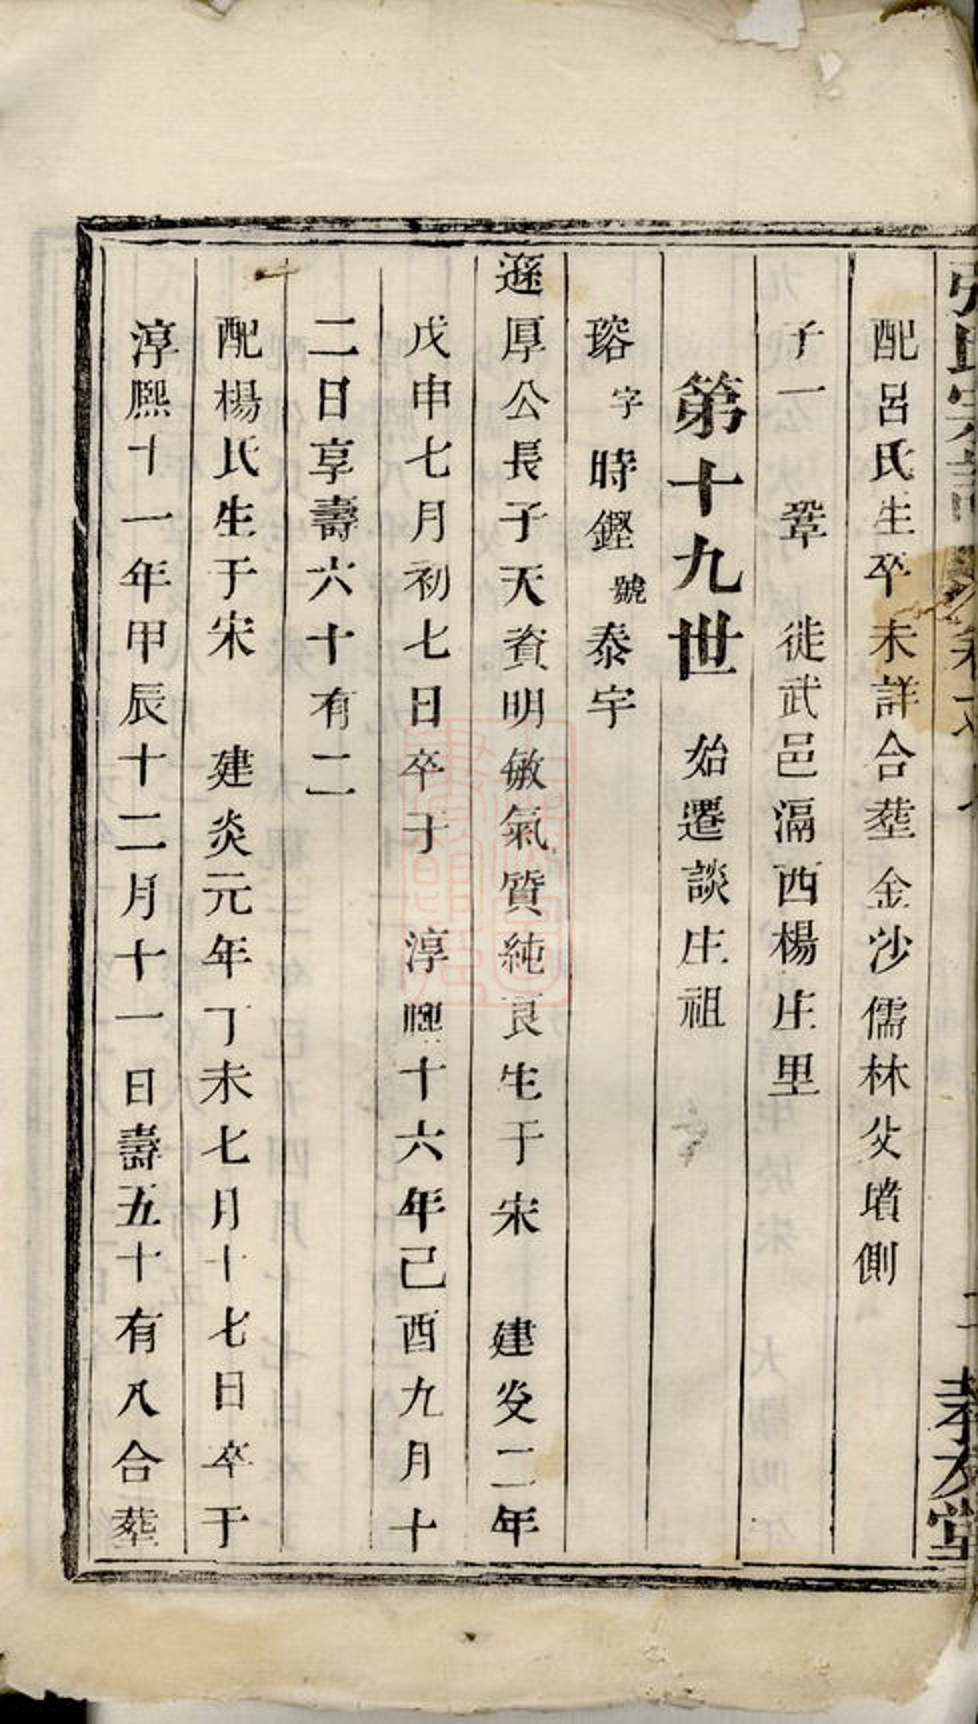 配呂氏生卒未詳合塟金沙儒林父墳側
子一 鞏 徙武邑滆西楊庄里
第十九世 始遷談庄祖
瑢字時鏗號泰宇
遜厚公長子天資明敏氣質純良生于宋 建炎二年
戊申七月初七日卒于 淳熈十六年己酉九月十
二日享壽六十有二
配楊氏生于宋 建炎元年丁未七月十七日卒于
淳熈十一年甲辰十二月十一日壽五十有八合塟
孝友堂